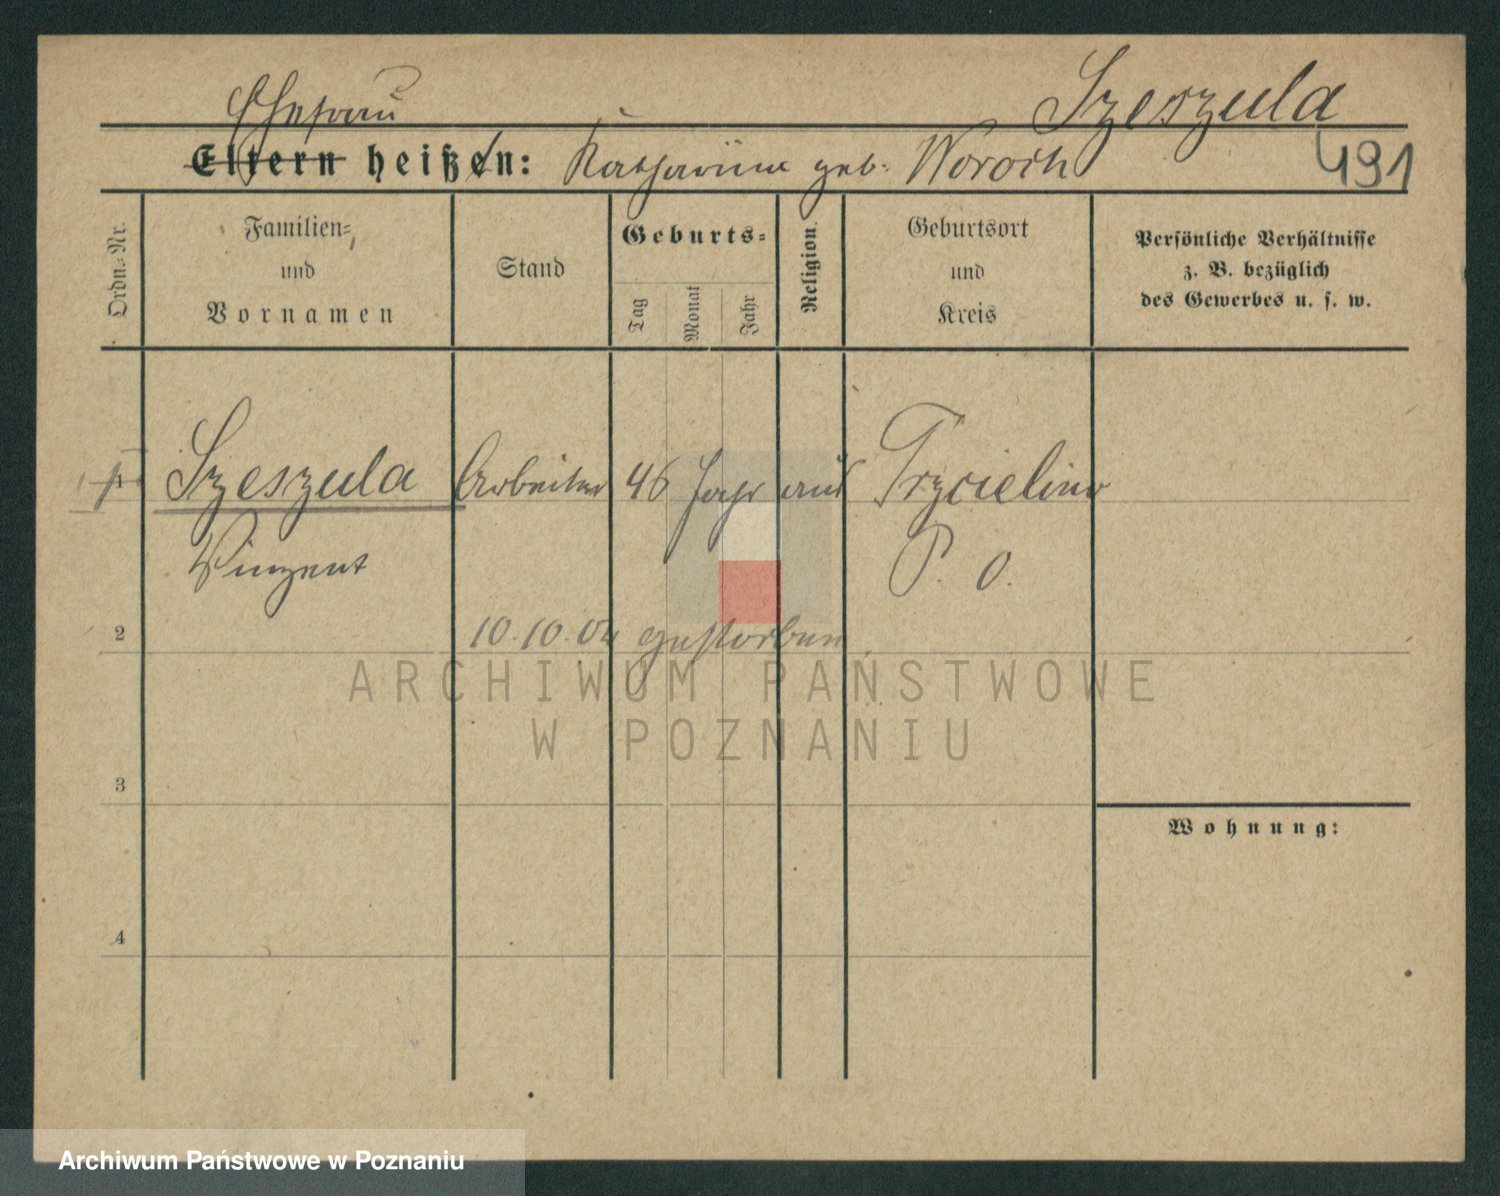 Szeszula
Ehefrau
Eltern heißen: Katharina geb. Woroch
491
Ordn.-Nr.
Familien-
und
Vornamen
Stand
Geburts-
Tag
Monat
Jahr
Religion.
Geburtsort
und
Kreis
Persönliche Verhältnisse
z. B. bezüglich
des Gewerbes u. s. w.
1 Szeszula Arbeiter 46 Jahr aus Trzcielino
Vinzent P. O.
2 10.10.04 gestorben
ARCHIWUM PAŃSTWOWE
W POZNANIU
3
Wohnung:
4
Archiwum Państwowe w Poznaniu